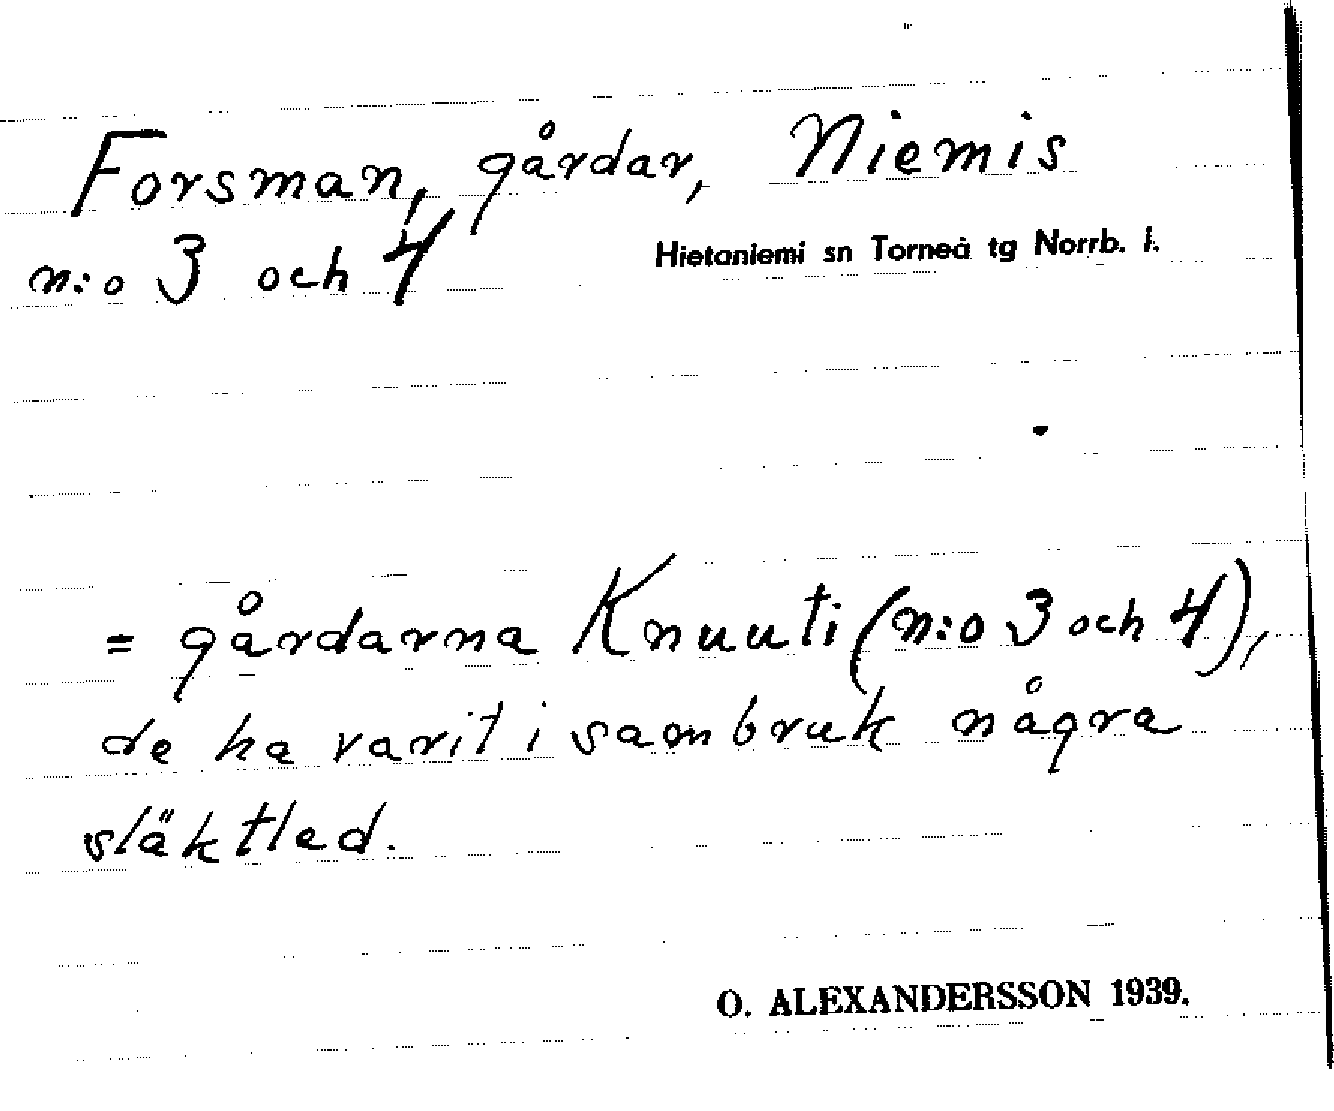 Forsman, gårdar, Niemis
n:o 3 och 4
Hietaniemi sn Torneå tg Norrb. l.
= gårdarna Knuuti (n:o 3 och 4),
de ha varit i sambruk några
släktled.
O. ALEXANDERSSON 1939.